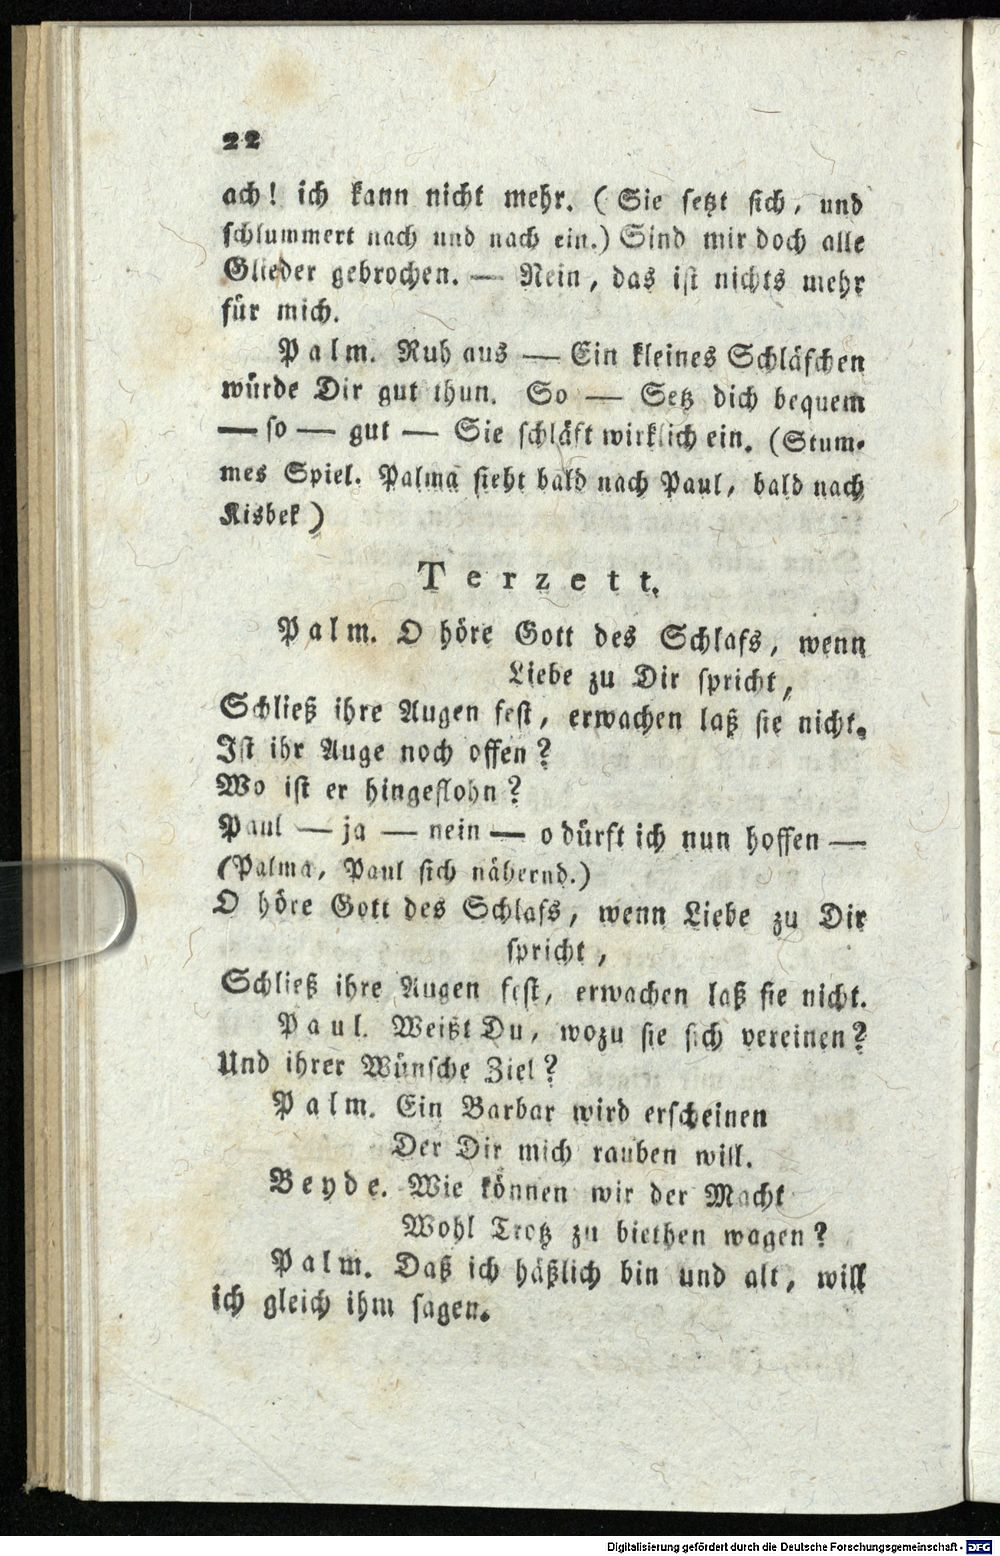 22
ach! ich kann nicht mehr. (Sie setzt sich, und
schlummert nach und nach ein.) Sind mir doch alle
Glieder gebrochen. — Nein, das ist nichts mehr
für mich.
Palm. Ruh aus — Ein kleines Schläfchen
würde Dir gut thun. So — Setz dich bequem
— so — gut — Sie schläft wirklich ein. (Stum-
mes Spiel. Palma sieht bald nach Paul, bald nach
Kisbek)
Terzett.
Palm. O höre Gott des Schlafs, wenn
Liebe zu Dir spricht,
Schließ ihre Augen fest, erwachen laß sie nicht.
Ist ihr Auge noch offen?
Wo ist er hingeflohn?
Paul — ja — nein — o dürft ich nun hoffen —
(Palma, Paul sich nähernd.)
O höre Gott des Schlafs, wenn Liebe zu Dir
spricht,
Schließ ihre Augen fest, erwachen laß sie nicht.
Paul. Weißt Du, wozu sie sich vereinen?
Und ihrer Wünsche Ziel?
Palm. Ein Barbar wird erscheinen
Der Dir mich rauben will.
Beyde. Wie können wir der Macht
Wohl Trotz zu biethen wagen?
Palm. Daß ich häßlich bin und alt, will
ich gleich ihm sagen.
Digitalisierung gefördert durch die Deutsche Forschungsgemeinschaft - DFG